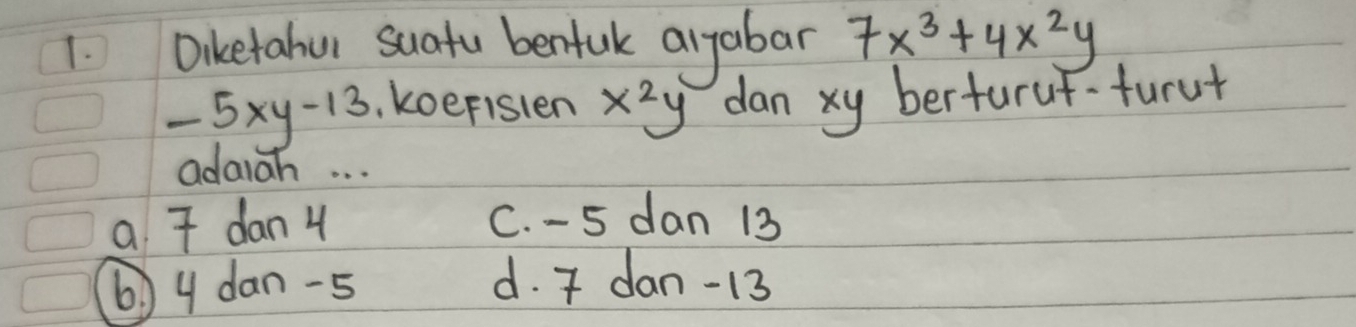 1. Diketahui suatu bentuk aljabar 7x³+4x²y
-5xy-13. Koefisien x²y dan xy berturut-turut
adalah ...
a. 7 dan 4 C. -5 dan 13
b. 4 dan -5 d. 7 dan -13